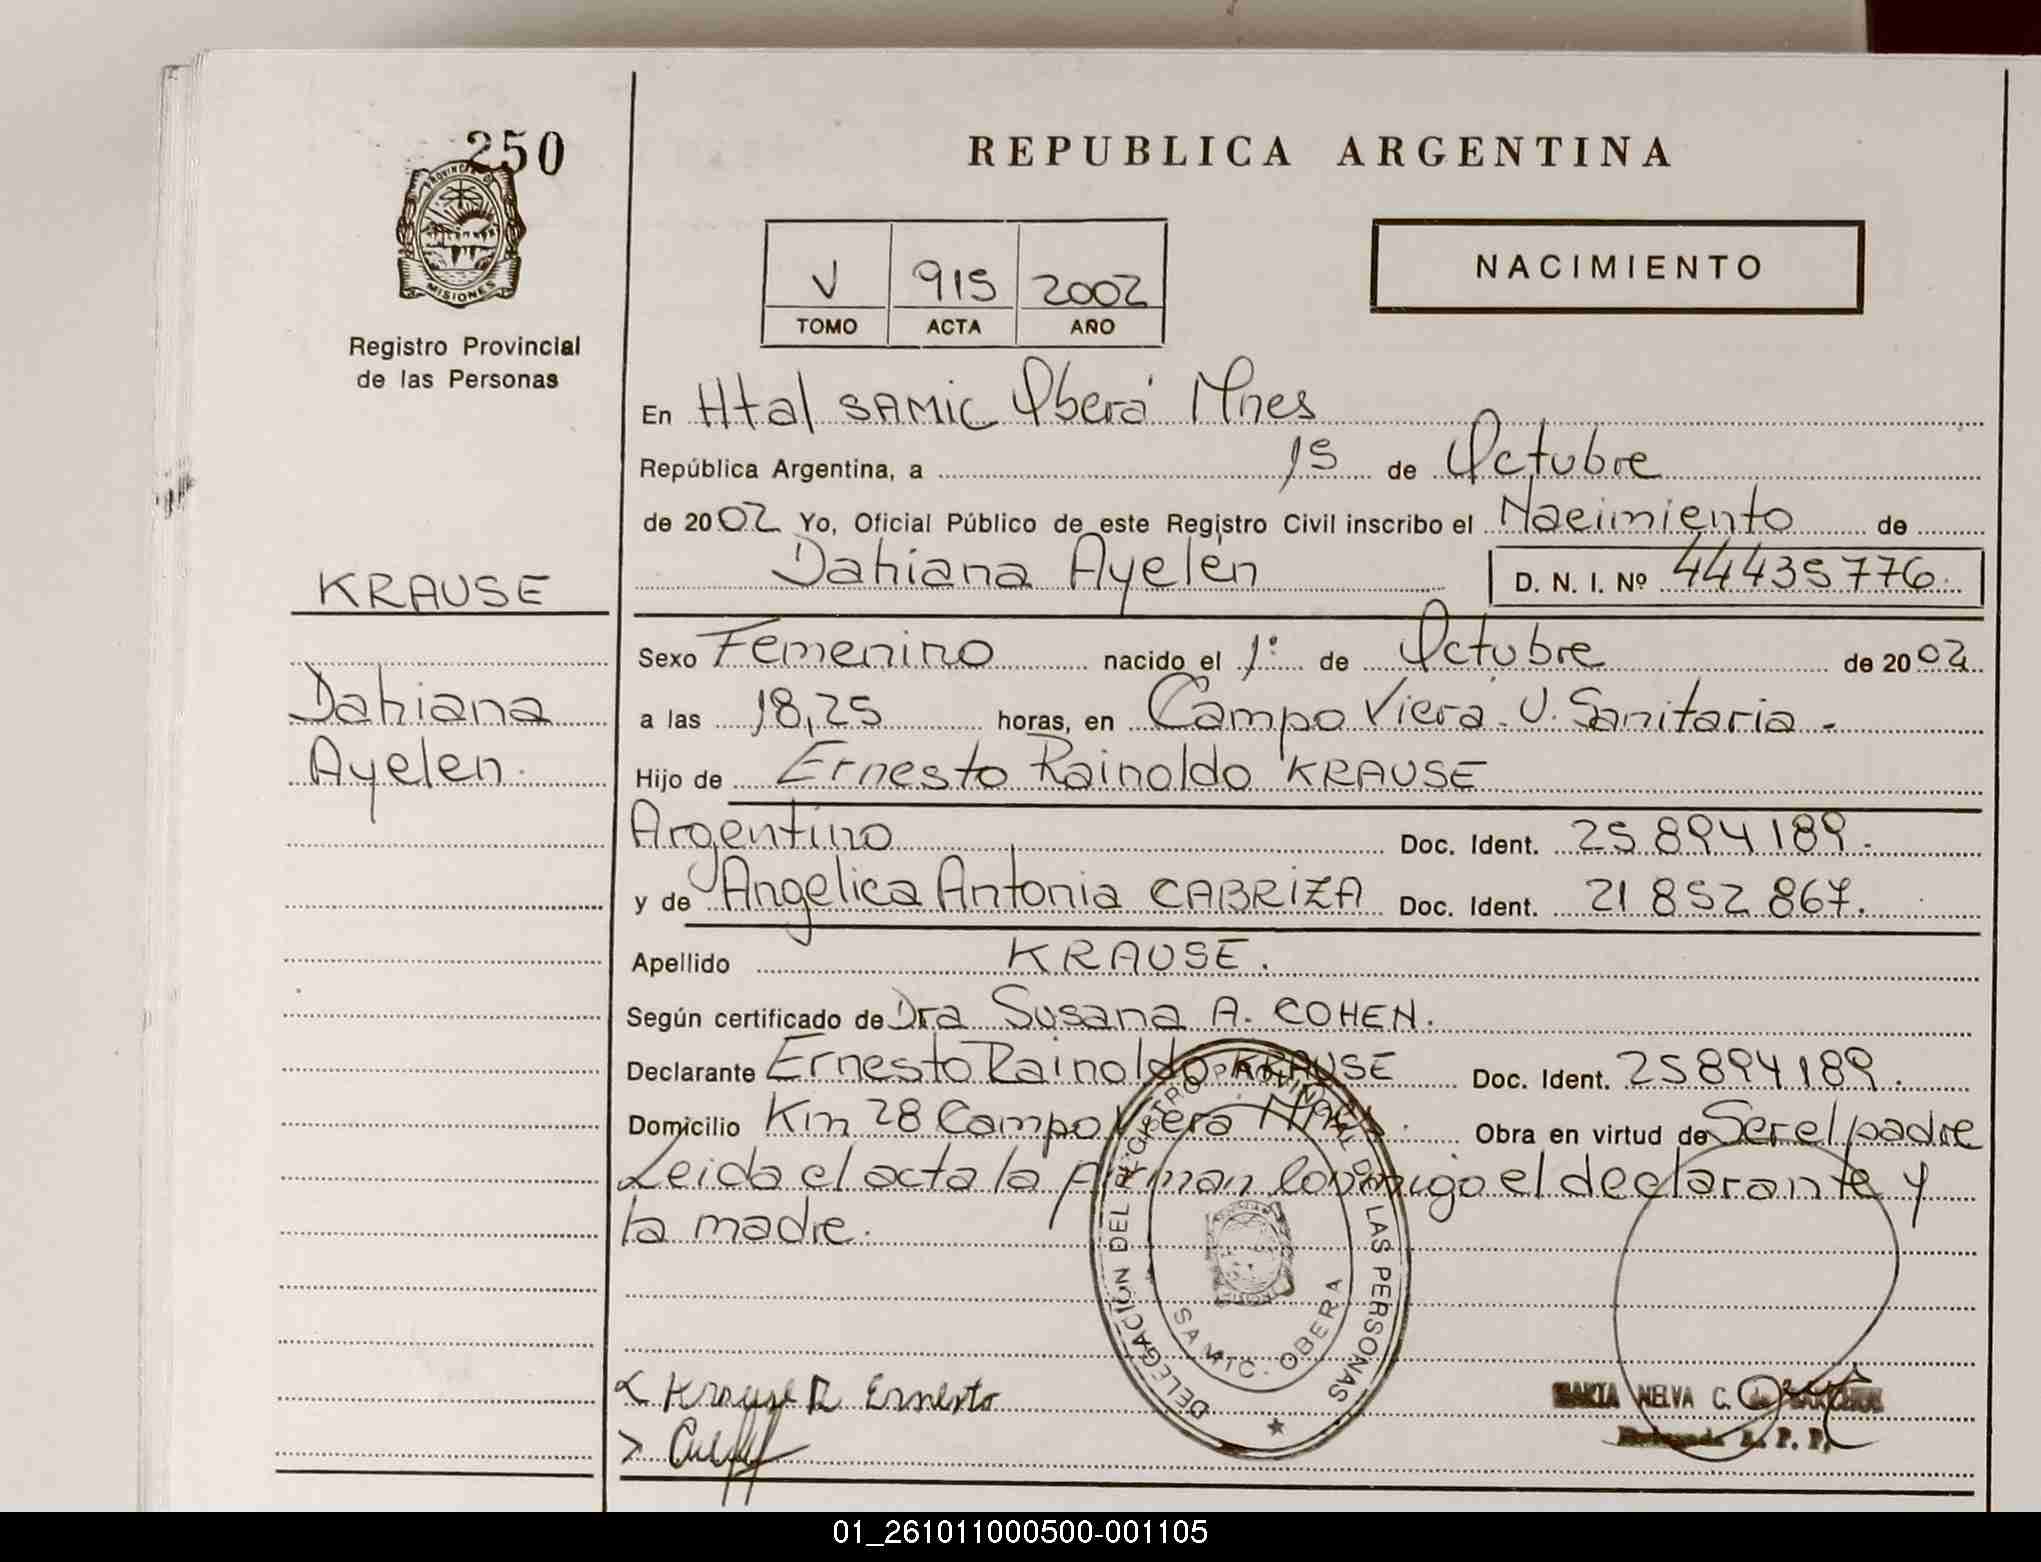 250
PROVINCIA D
MISIONES
Registro Provincial
de las Personas
KRAUSE
Dahiana
Ayelen.
REPUBLICA ARGENTINA
V 915 2002
TOMO ACTA AÑO
NACIMIENTO
En Htal SAMIC Oberá Mnes
República Argentina, a 15 de Octubre
de 2002 Yo, Oficial Público de este Registro Civil inscribo el Nacimiento de
Dahiana Ayelén D. N. I. Nº 44435776.
Sexo Femenino nacido el 1º de Octubre de 2002
a las 18,25 horas, en Campo Viera. U. Sanitaria.-
Hijo de Ernesto Rainoldo KRAUSE
Argentino Doc. Ident. 25 894 189.-
y de Angelica Antonia CABRIZA Doc. Ident. 21 852 867.
Apellido KRAUSE.
Según certificado de Dra Susana A. COHEN.
Declarante Ernesto Rainoldo KRAUSE Doc. Ident. 25894189.
Domicilio Km 28 Campo Viera Mnes. Obra en virtud de Ser el padre
Leida el acta la firman conmigo el declarante y
la madre.
DELEGACIÓN DEL REGISTRO PROVINCIAL DE LAS PERSONAS
SAMIC. OBERA
Krause R Ernesto
MARIA NELVA C. de
A. P. P.
01_261011000500-001105